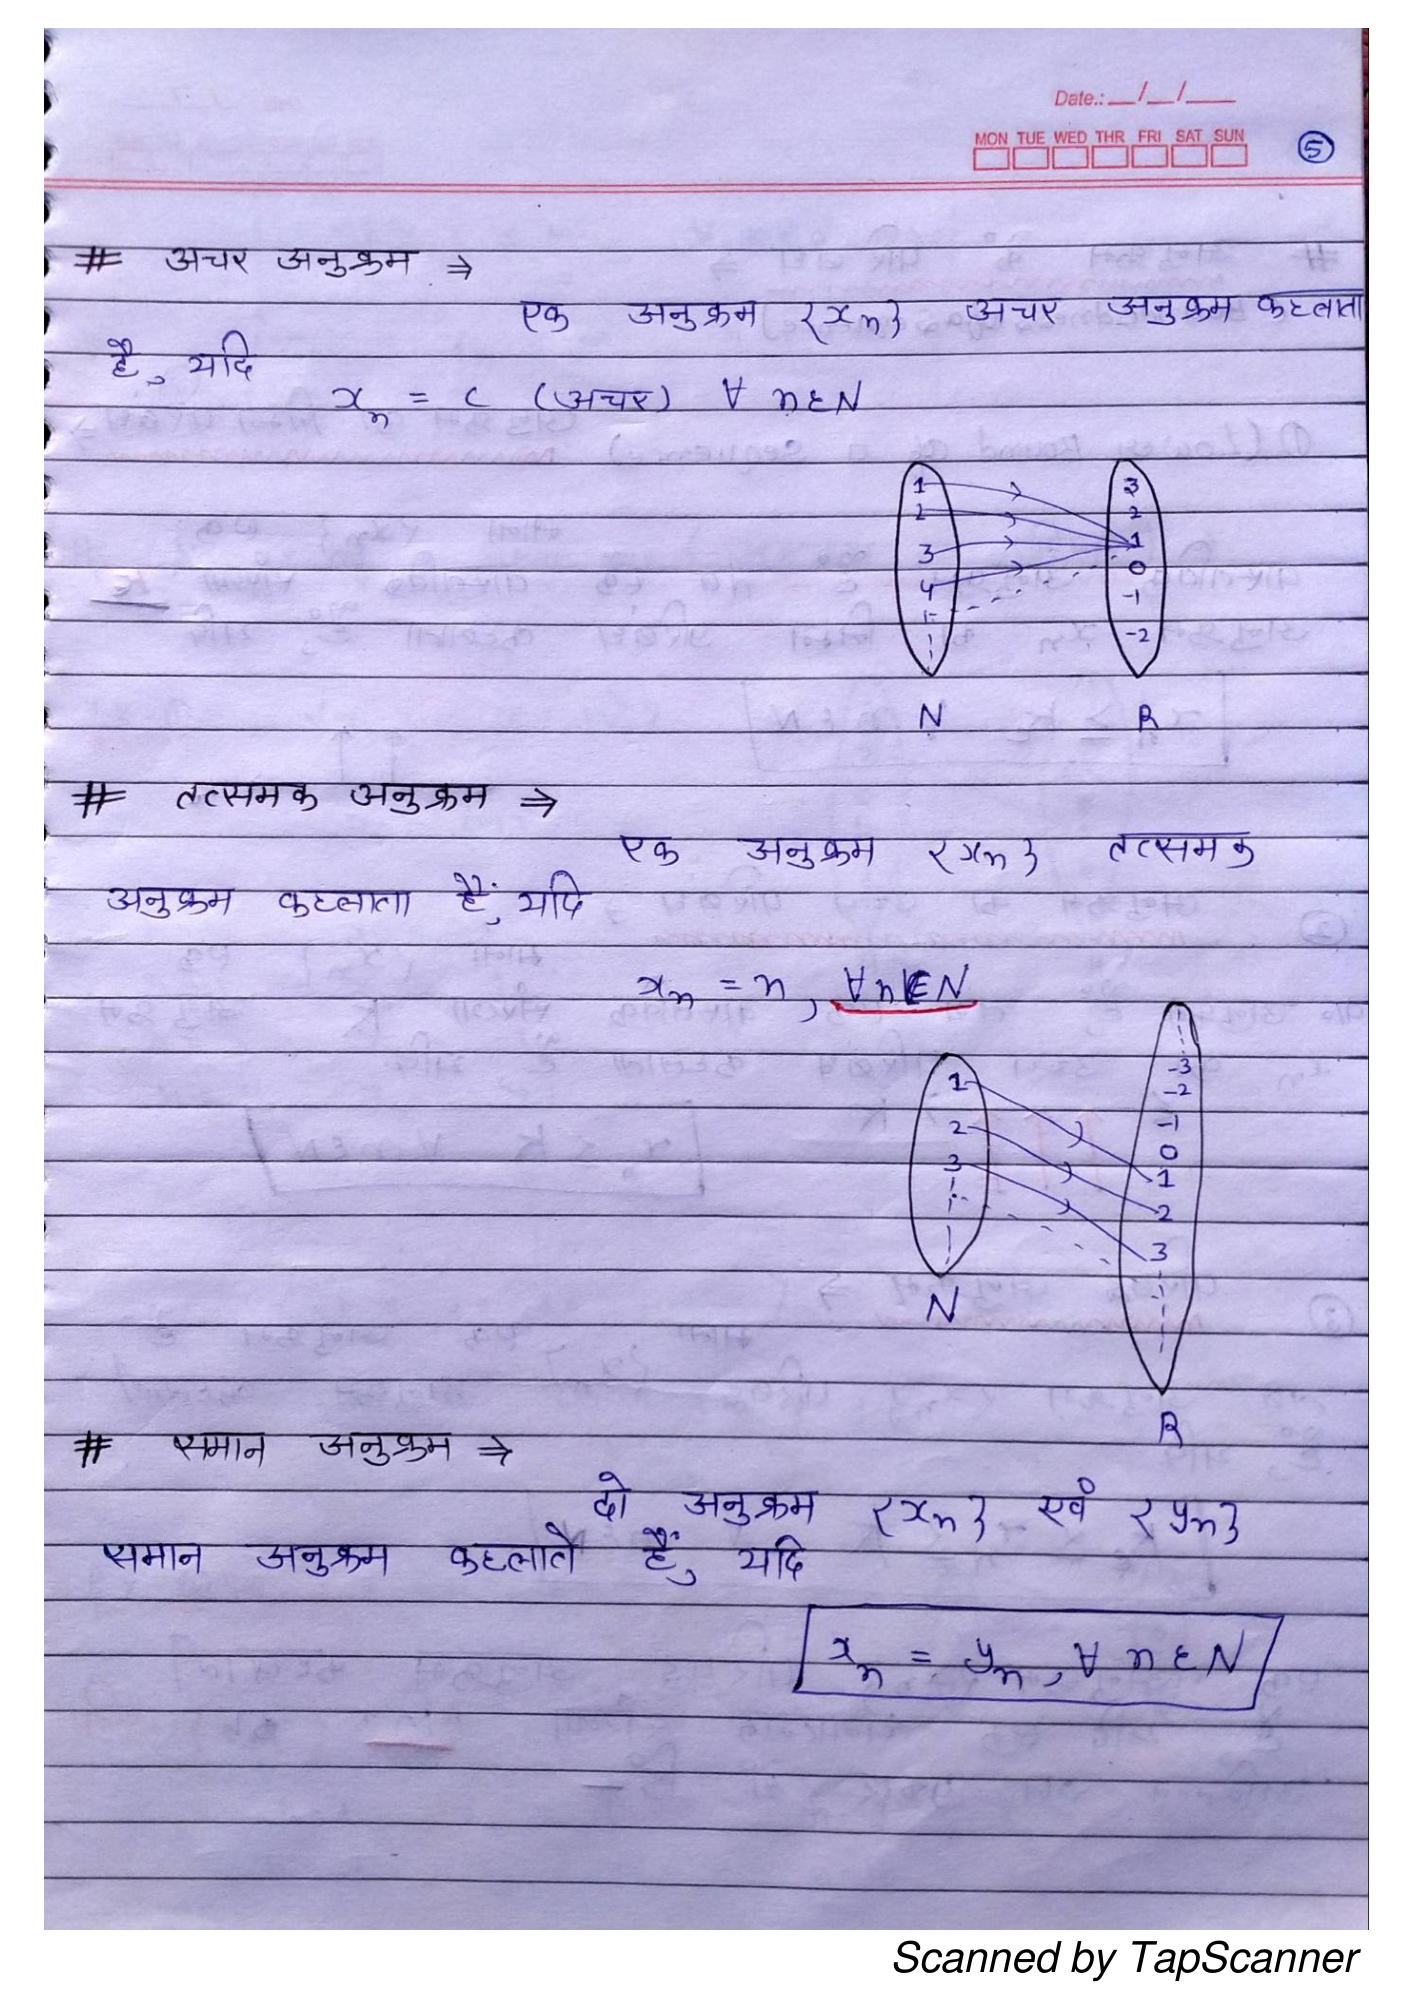 Date.: __/__/____
MON TUE WED THR FRI SAT SUN
5
# अचर अनुक्रम ⇒
एक अनुक्रम {xₙ} अचर अनुक्रम कहलाता
है, यदि
xₙ = c (अचर) ∀ n ε N
1
2
3
4
3
2
1
0
-1
-2
N R
# तत्समक अनुक्रम ⇒
एक अनुक्रम {xₙ} तत्समक
अनुक्रम कहलाता हैं, यदि
xₙ = n, ∀ n ∈ N
1
2
3
N
-3
-2
-1
0
1
2
3
R
# समान अनुक्रम ⇒
दो अनुक्रम {xₙ} एवं {yₙ}
समान अनुक्रम कहलाते हैं, यदि
xₙ = yₙ, ∀ n ε N
Scanned by TapScanner